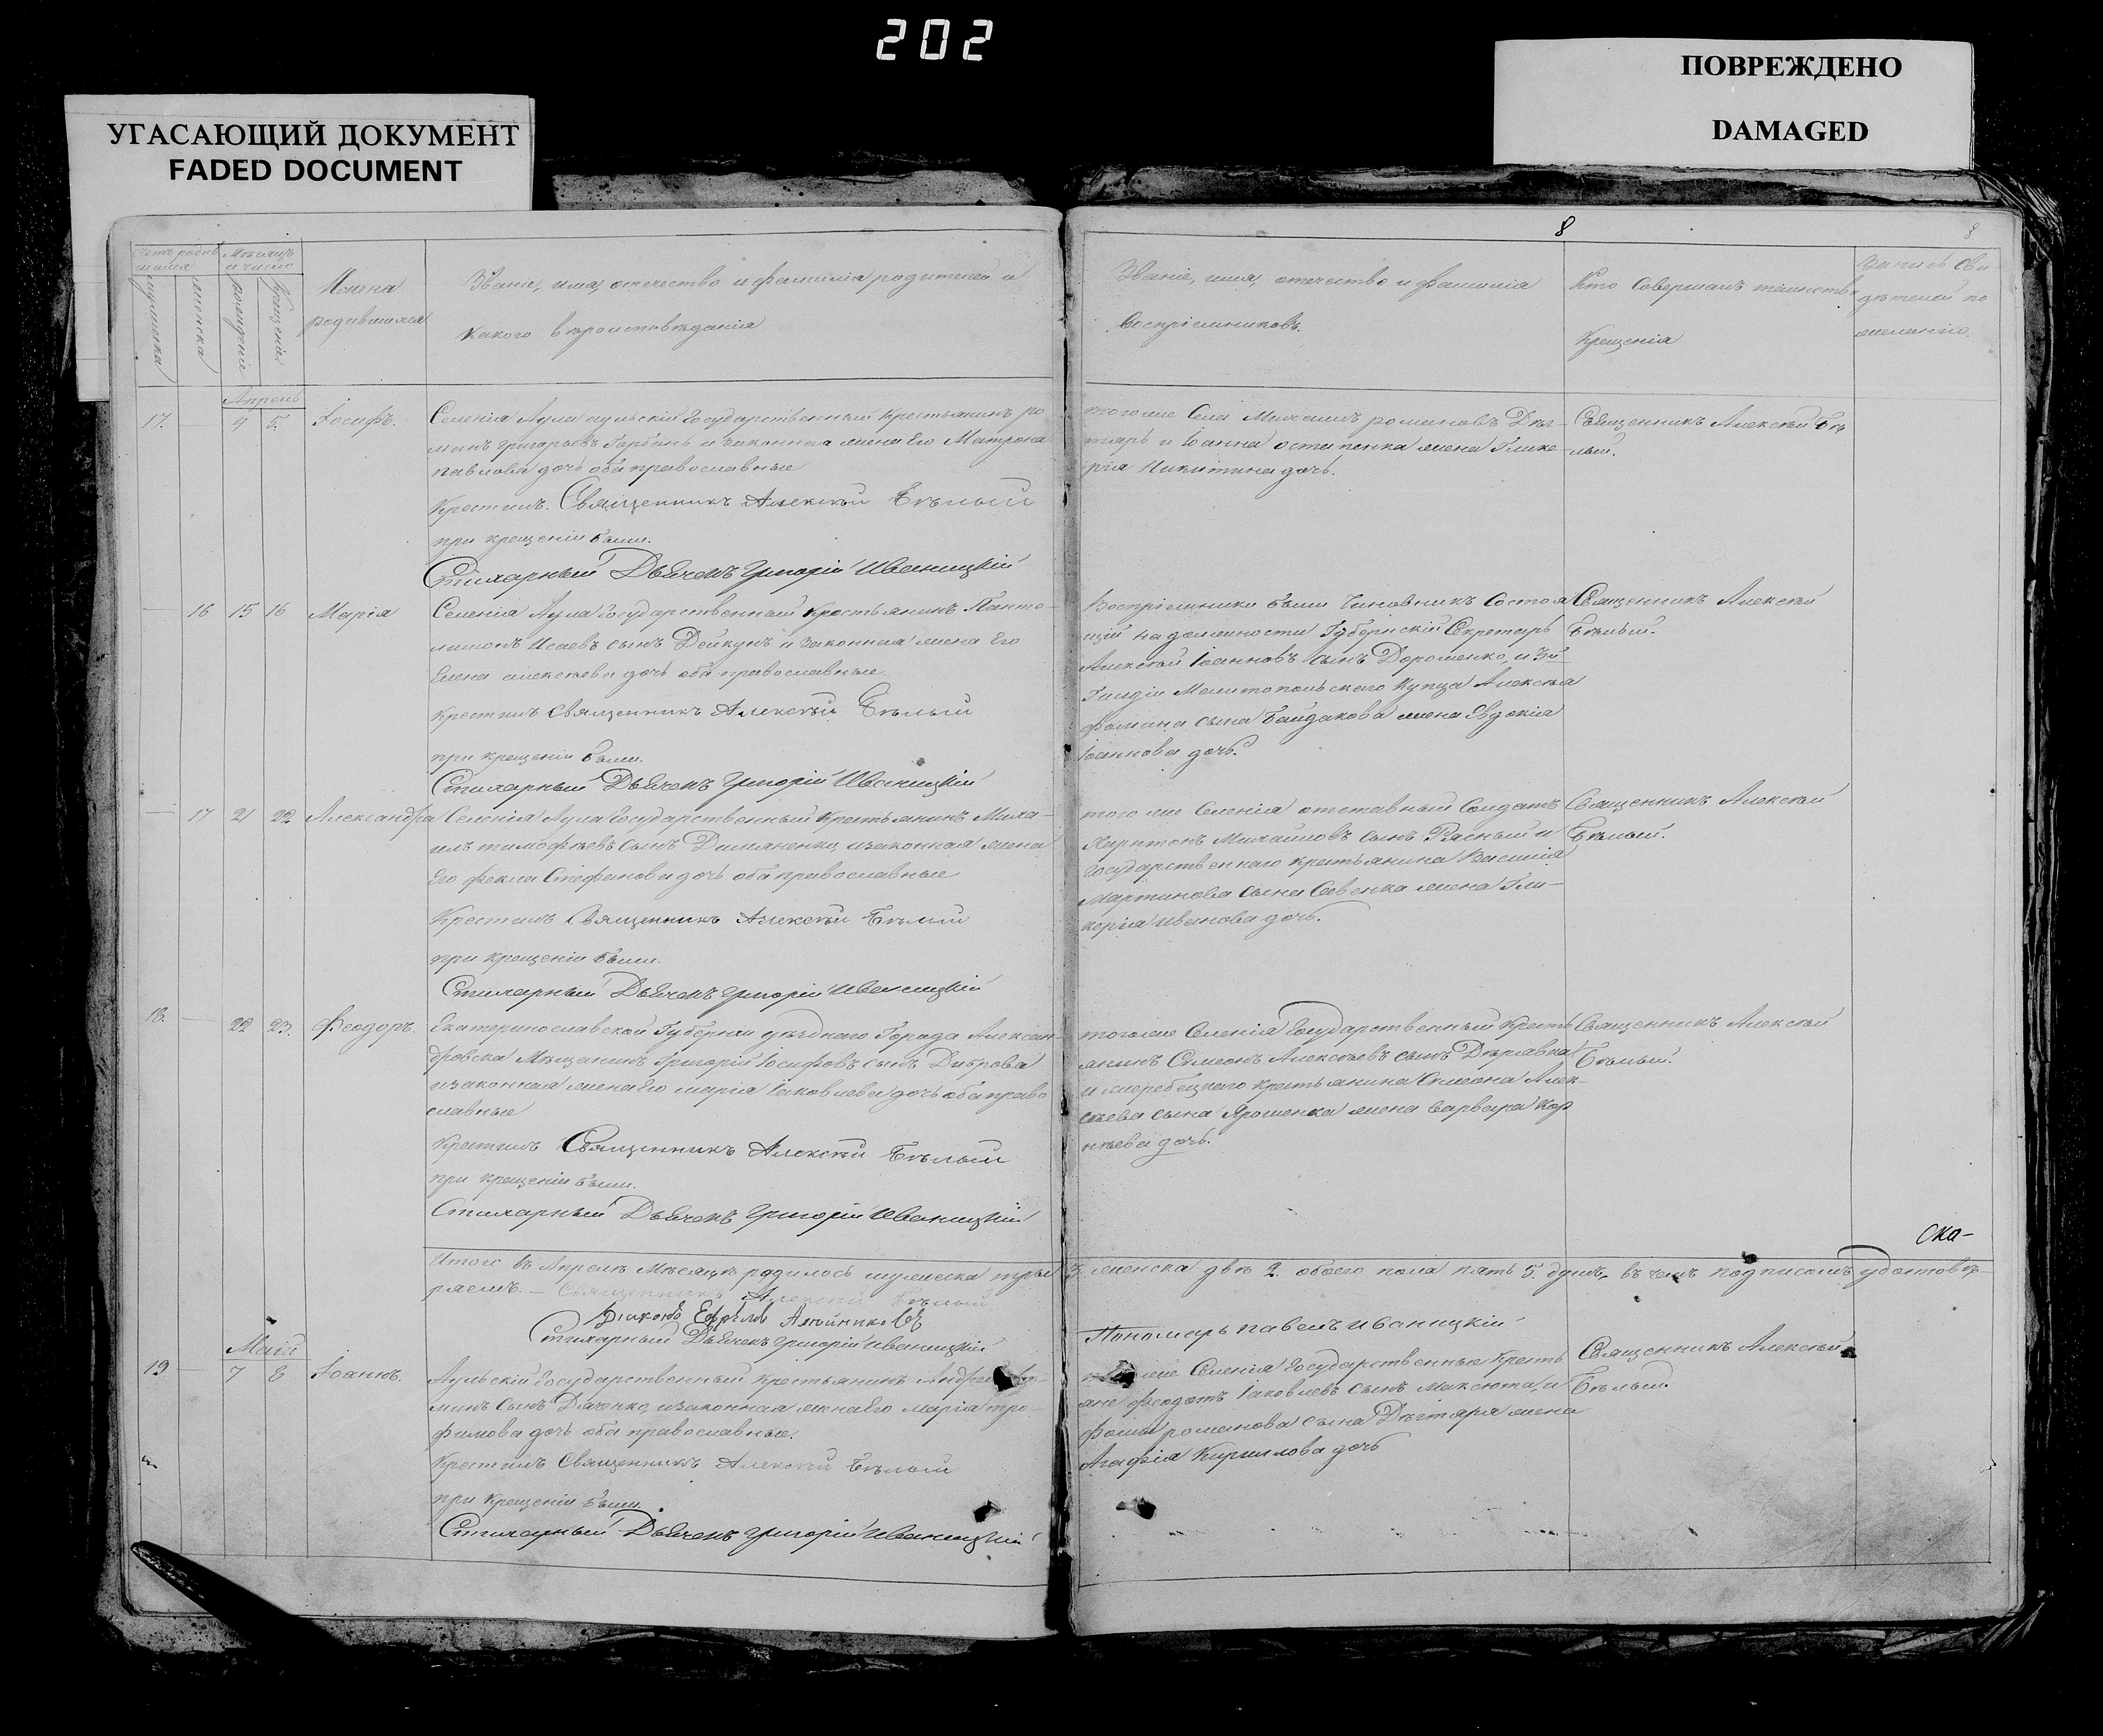 202
УГАСАЮЩИЙ ДОКУМЕНТ
FADED DOCUMENT
ПОВРЕЖДЕНО
DAMAGED
8
8
Мѣсяцъ и число
мужеска
женска
рожденіе
крещенія
Имена
родившихся
Званіе, имя, отечество и фамилія родителей и
какого вѣроисповѣданія
Званіе, имя, отечество и фамилія
воспріемниковъ.
Кто совершалъ таинство
крещенія
Запись сви
дѣтелей по
желанію.
Апрель
17. 4 5. Іосифъ.
Селенія Аула аульскій государственный крестьянинъ ро
манъ григорьевъ Горбань и законная жена Его Матрона
павлова дочь оба православные
Крестилъ. Священникъ Алексѣй Бѣлый
при крещеніи были.
Стихарный Дьячекъ Григорій Иваницкій
тогоже Села Михаилъ романовъ Дѣг-
тярь и Іоанна остапенка жена Глике-
рія Никитина дочь.
Священникъ Алексѣй Бѣ
лый.
16 15 16 Марія
Селенія Аула государственный крестьянинъ Панте-
лимонъ Исаевъ сынъ Дейкунъ и законная жена Его
Елена алексѣева дочь оба православные
Крестилъ Священникъ Алексѣй Бѣлый
при крещеніи были.
Стихарный Дьячекъ Григорій Иваницкій
Воспріемники были Чиновникъ состоя
щій на должности Губернскій Секретарь
Алексѣй Іоанновъ сынъ Дорошенко, и 3й
Гилдіи Мелитопольскаго Купца Алексѣя
фомина сына Байдакова жена Евдокія
Іоаннова дочь.
Священникъ Алексѣй
Бѣлый.
17 21 22 Александра
Селенія Аула государственный крестьянинъ Миха-
илъ тимофѣевъ сынъ Демяненко, изаконная жена
Его фекла Стефанова дочь оба православные
Крестилъ Священникъ Алексѣй Бѣлый
при крещеніи были.
Стихарный Дьячекъ григорій Иваницкій
того же Селенія отставный Солдатъ
Харитонъ Михайловъ сынъ Рясный и
государственнаго крестьянина Василія
Мартинова сына Савенка жена Гли-
керія Иванова дочь.
Священникъ Алексѣй
Бѣлый.
18. 22 23. Феодоръ.
Екатеринославской Губерніи уѣзднаго Города Алексан-
дровска Мѣщанинъ Григорій Іосифовъ сынъ Диброва
изаконная жена Его марія Іаковлева дочь оба право
славные
Крестилъ Священникъ Алексѣй Бѣлый
при крещеніи были.
Стихарный Дьячекъ Григорій Иваницкій
тогоже Селенія государственный кресть
янинъ Симеонъ Алексѣевъ сынъ Дѣркавка
и жеребецкаго крестьянина Симеона Алек-
сѣева сына Ярошенка жена варвара Кор
нѣева дочь.
Священникъ Алексѣй
Бѣлый.
Ска-
Итого въ Апрелѣ Мѣсяцѣ родилось мужеска трое 3. женска двѣ 2. обоего пола пять 5. душъ, въ чемъ подписомъ удостовѣ-
ряемъ. — Священникъ Алексѣй Бѣлый
Діаконъ Ефремъ
Стихарный Дьячекъ григорій Иваницкій
Пономарь павелъ иваницкій
Маія
19 7 8 Іоаннъ.
Аульскій государственный крестьянинъ Андрей
минъ сынъ Дяченко, изаконная жена Его марія тро-
фимова дочь оба православные.
Крестилъ Священникъ Алексѣй Бѣлый
при крещеніи были
Стихарный Дьячекъ григорій Иваницкій
же Селенія государственные кресть
яне феодотъ Іаковлевъ сынъ Максюта, и
фомы романова сына Дѣгтяря жена
Агафія Кириллова дочь
Священникъ Алексѣй
Бѣлый.